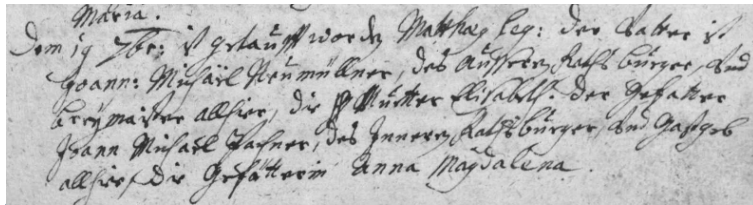 Maria.
Dem 19 7br: ist getaufft worden Matthæy leg: der Vatter ist
Joann: Michaël Neumüllner, des Aussern Raths burger, und
breymaister allhier, die Mutter Elisabeth. der Gefatter
Joann Michaël Pachner, des Innern Rathsburger, und Gastgeb
allhier, die Gefätterin Anna Magdalena.